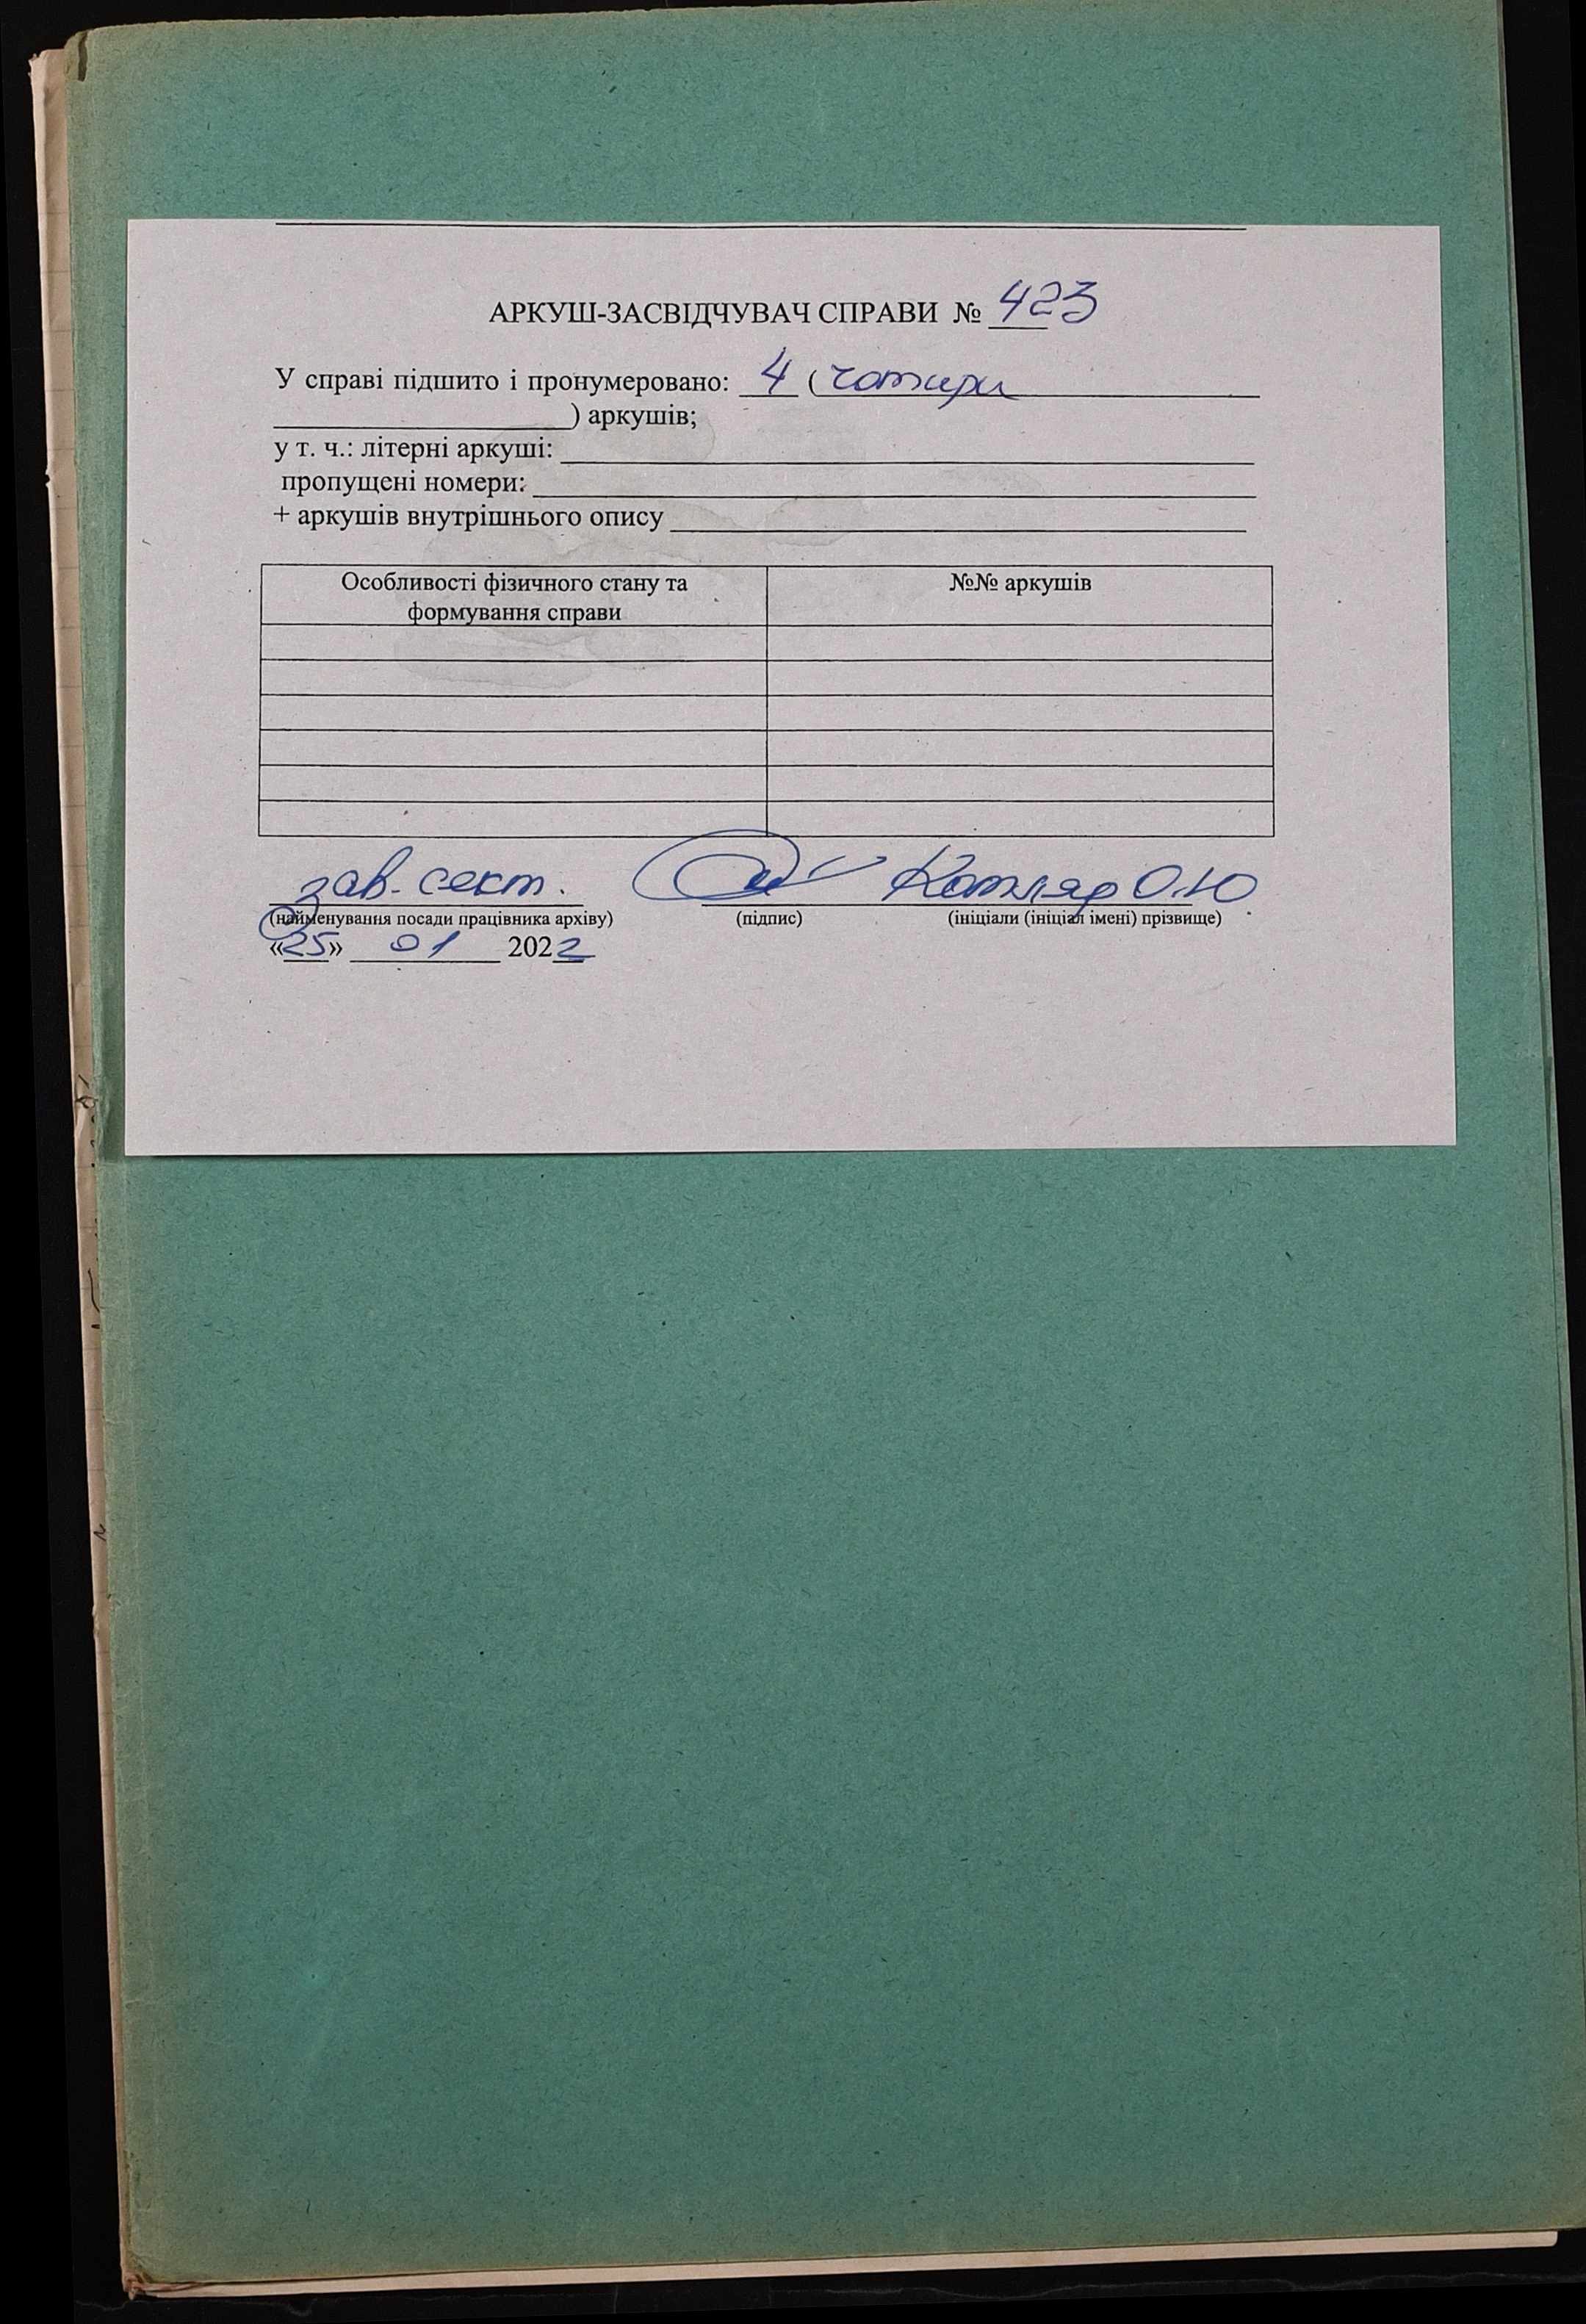 АРКУШ-ЗАСВІДЧУВАЧ СПРАВИ № 423
У справі підшито і пронумеровано: 4 ( чотири
) аркушів;
у т. ч.: літерні аркуші:
пропущені номери:
+ аркушів внутрішнього опису
Особливості фізичного стану та
формування справи
№№ аркушів
зав. сект. Котляр О.Ю
(найменування посади працівника архіву) (підпис) (ініціали (ініціал імені) прізвище)
«25» 01 2022